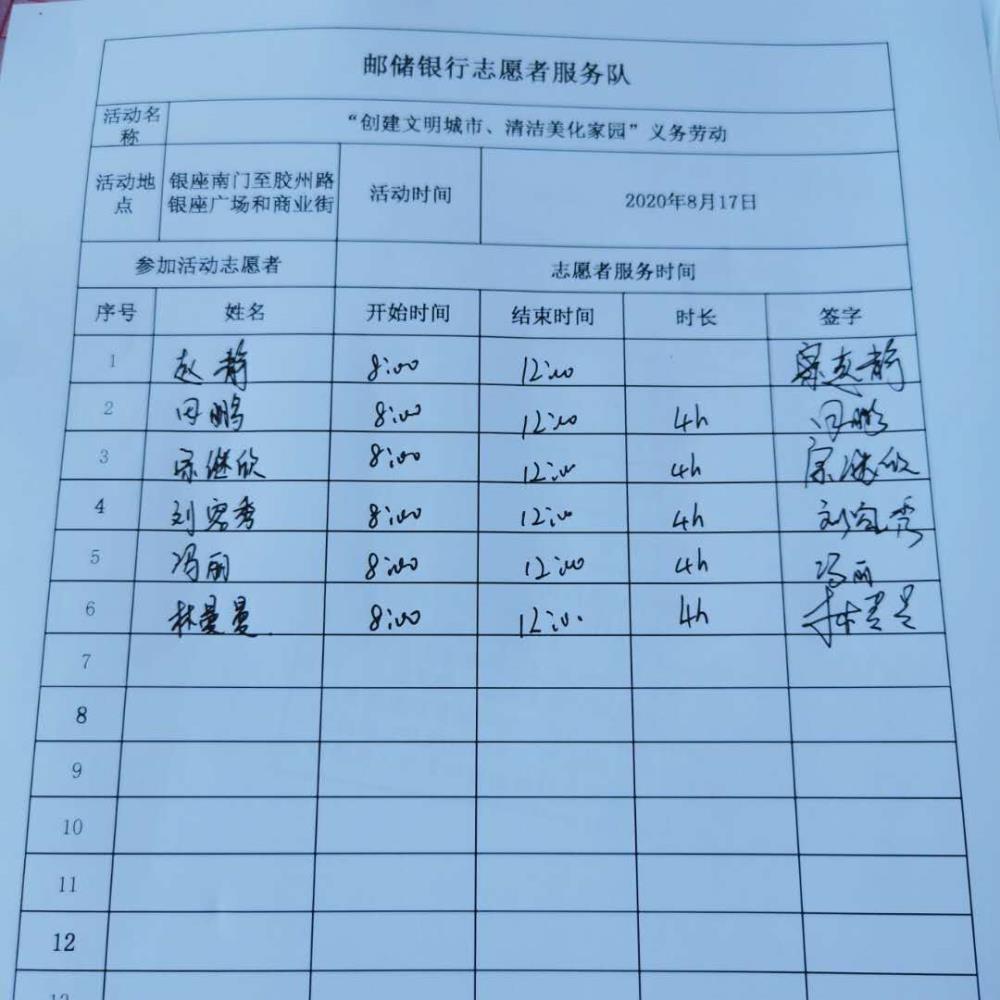 邮储银行志愿者服务队
活动名称 “创建文明城市、清洁美化家园”义务劳动
活动地点 银座南门至胶州路银座广场和商业街 活动时间 2020年8月17日
参加活动志愿者 志愿者服务时间
序号 姓名 开始时间 结束时间 时长 签字
1 赵静 8:00 12:00 赵静
2 田鹏 8:00 12:00 4h 田鹏
3 宗继欣 8:00 12:00 4h 宗继欣
4 刘容秀 8:00 12:00 4h 刘容秀
5 冯丽 8:00 12:00 4h 冯丽
6 林曼曼 8:00 12:00 4h 林曼曼
7
8
9
10
11
12